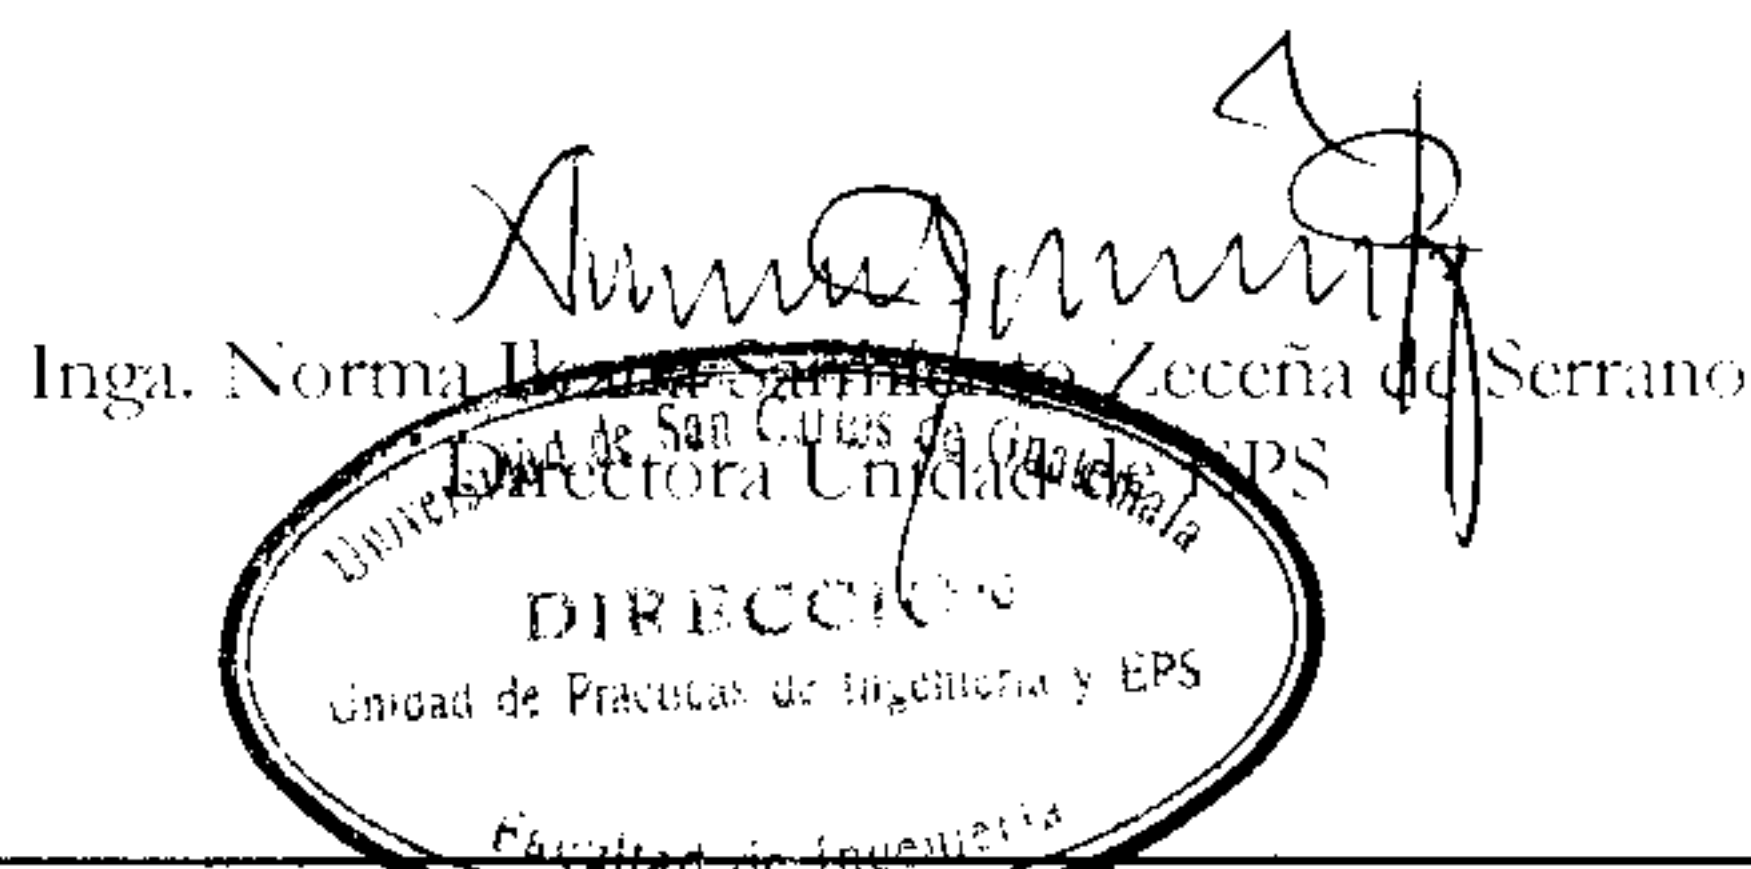 Inga. Norma Ileana Sarmiento Zeceña de Serrano
Directora Unidad de EPS
Universidad de San Carlos de Guatemala
DIRECCION
Unidad de Prácticas de Ingeniería y EPS
Facultad de Ingeniería